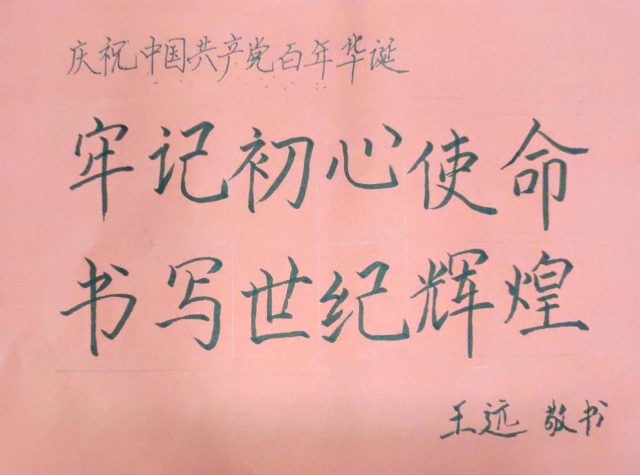 庆祝中国共产党百年华诞
牢记初心使命
书写世纪辉煌
王远 敬书